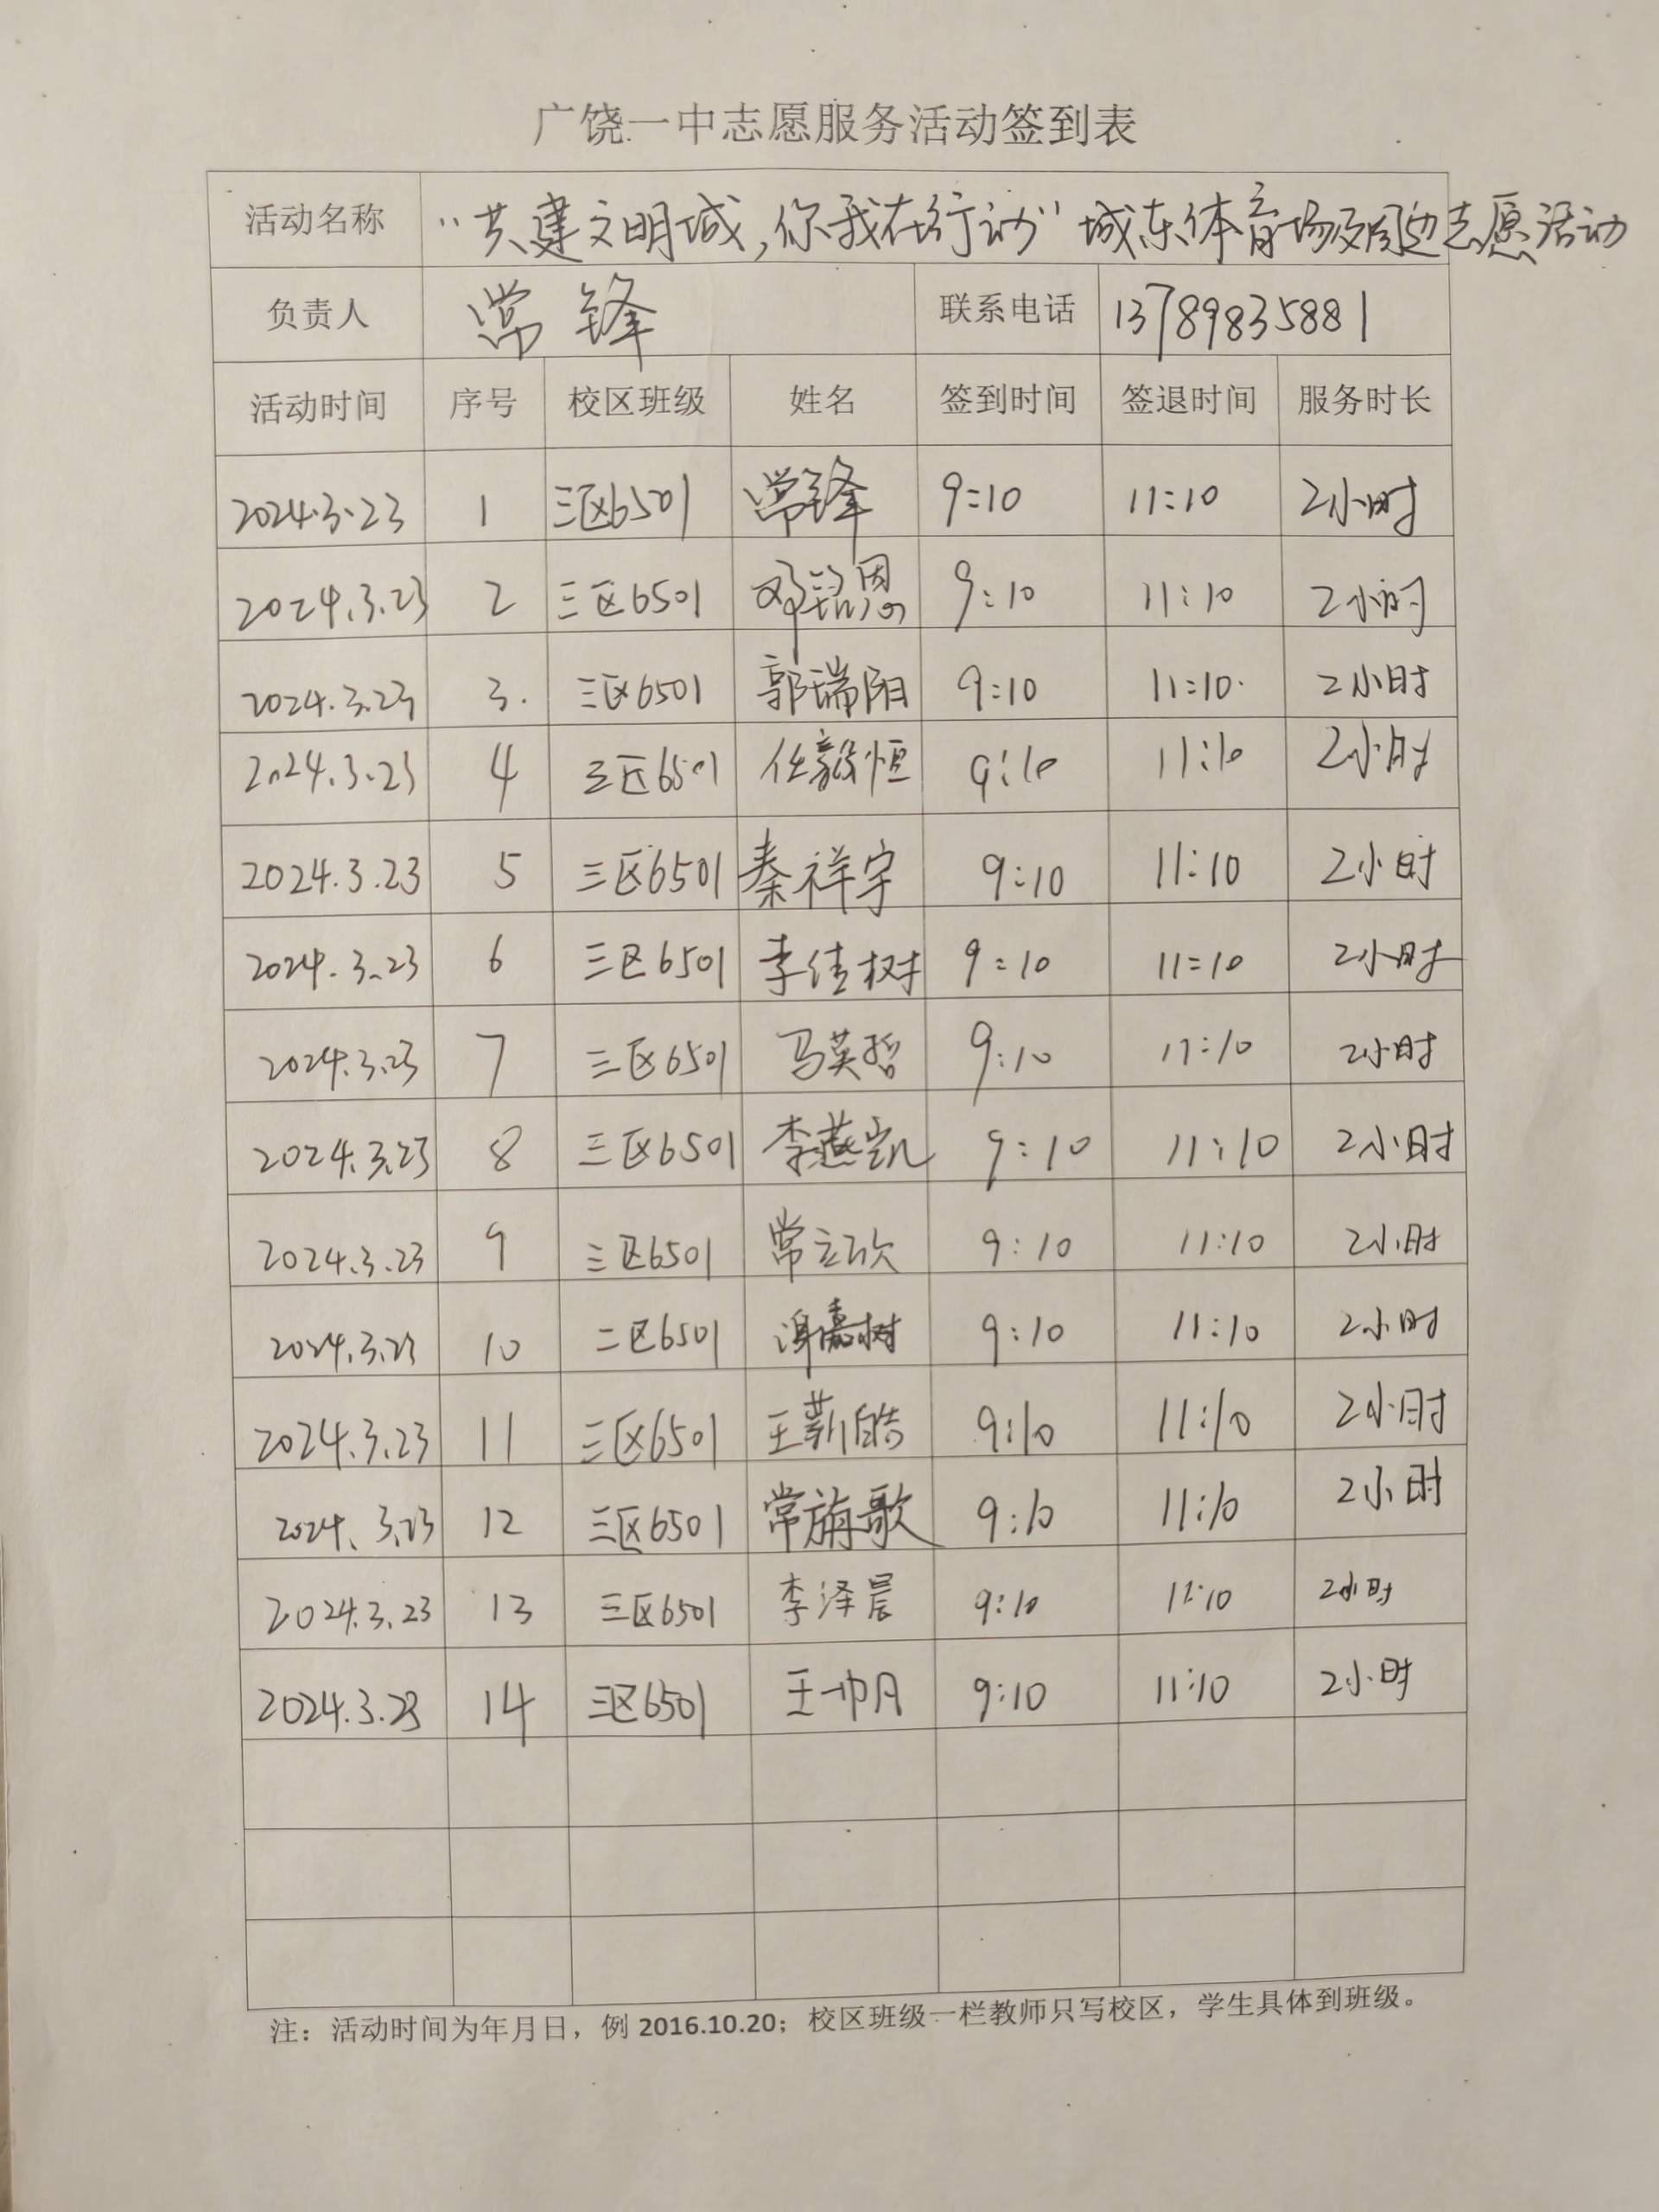 广饶一中志愿服务活动签到表
活动名称 “共建文明城,你我在行动”城东体育场及周边志愿活动
负责人 常锋 联系电话 13789835881
活动时间 序号 校区班级 姓名 签到时间 签退时间 服务时长
2024.3.23 1 三区6501 常锋 9:10 11:10 2小时
2024.3.23 2 三区6501 邓铭恩 9:10 11:10 2小时
2024.3.23 3. 三区6501 郭瑞阳 9:10 11:10. 2小时
2024.3.23 4 三区6501 任毅恒 9:10 11:10 2小时
2024.3.23 5 三区6501 秦祥宇 9:10 11:10 2小时
2024.3.23 6 三区6501 李佳树 9:10 11:10 2小时
2024.3.23 7 三区6501 马英哲 9:10 11:10 2小时
2024.3.23 8 三区6501 李燕凯 9:10 11:10 2小时
2024.3.23 9 三区6501 常立欣 9:10 11:10 2小时
2024.3.23 10 二区6501 9:10 11:10 2小时
2024.3.23 11 三区6501 王新皓 9:10 11:10 2小时
2024.3.23 12 三区6501 常旃歌 9:10 11:10 2小时
2024.3.23 13 三区6501 李泽晨 9:10 11:10 2小时
2024.3.23 14 三区6501 9:10 11:10 2小时
注：活动时间为年月日，例 2016.10.20；校区班级一栏教师只写校区，学生具体到班级。